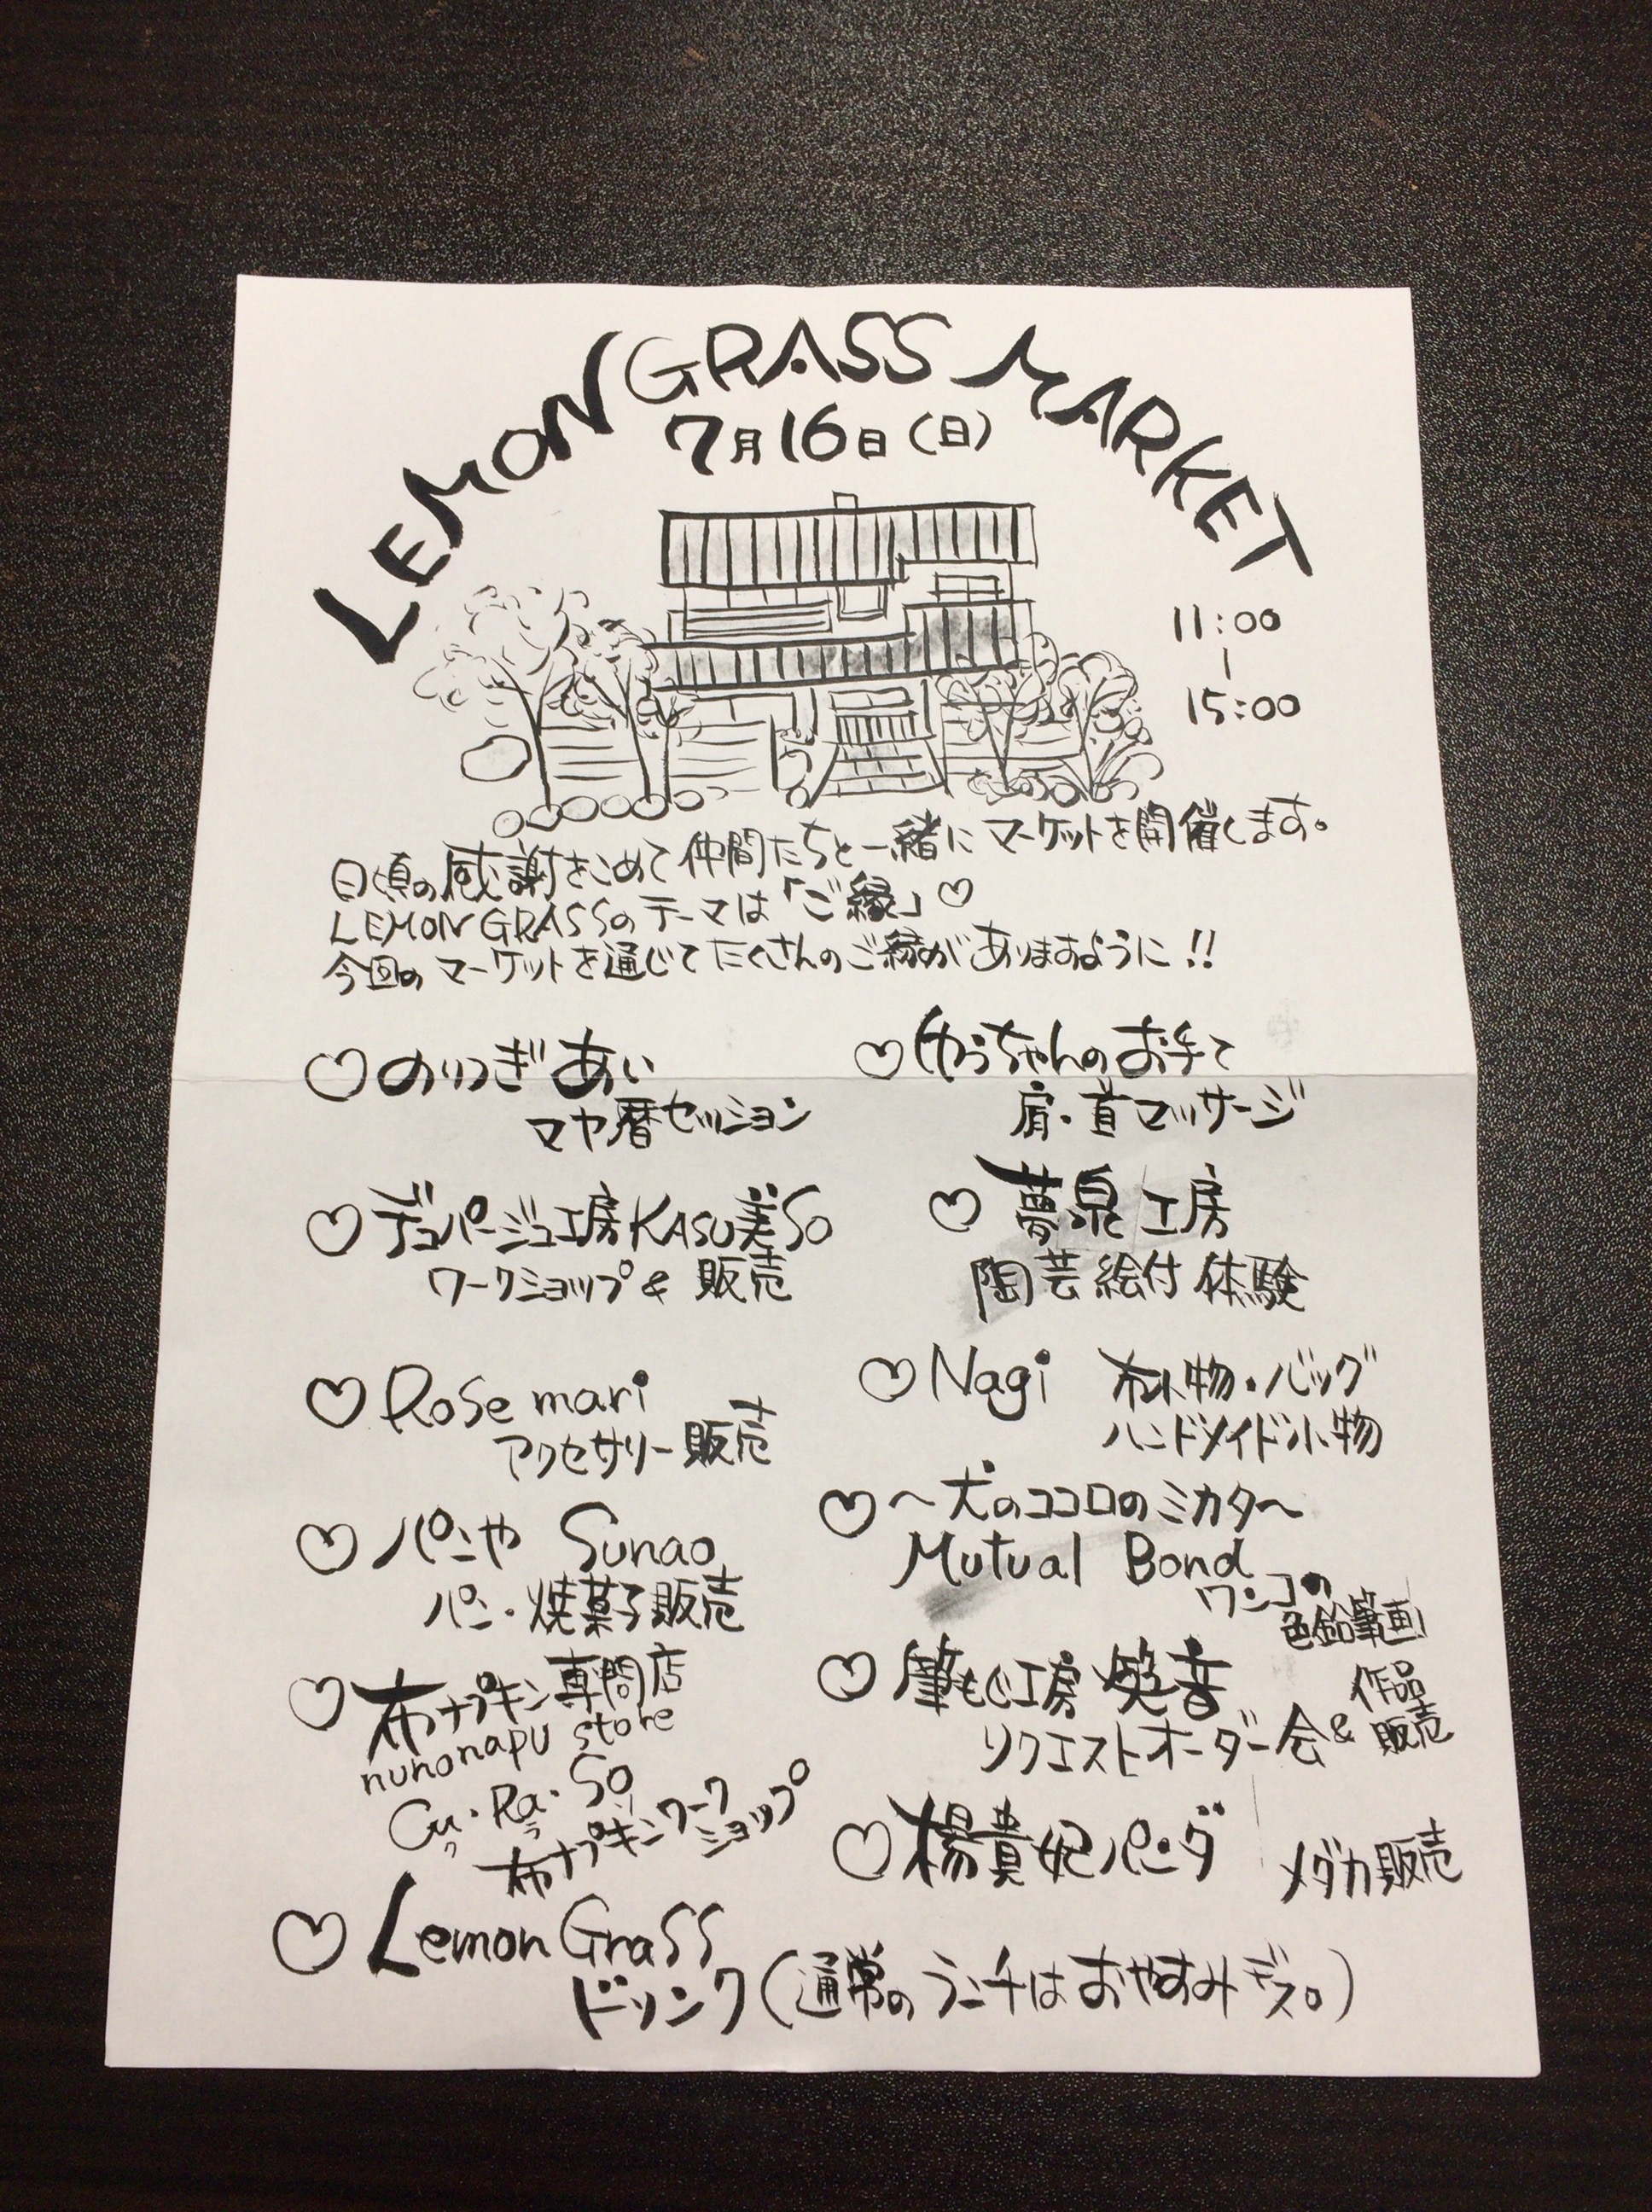 LEMON GRASS MARKET
7月16日(日)
11:00
|
15:00
日頃の感謝をこめて仲間たちと一緒にマーケットを開催します。
LEMON GRASSのテーマは「ご縁」♡
今回のマーケットを通じてたくさんのご縁がありますように!!
♡のりつぎあい
マヤ暦セッション
♡ゆうちゃんのお手て
肩・首マッサージ
♡デコパージュ工房KASU美So
ワークショップ&販売
♡夢泉工房
陶芸絵付体験
♡Rose mari
アクセサリー販売
♡Nagi 布小物・バッグ
ハンドメイド小物
♡パンや Sunao
パン・焼菓子販売
♡〜犬のココロのミカタ〜
Mutual Bond
ワンコの
色鉛筆画
♡布ナプキン専門店
nunonapu store
Cu・Ra・So
布ナプキンワーク
ショップ
♡筆もじ工房 笑音
リクエストオーダー会&作品
販売
♡楊貴妃パンダ メダカ販売
♡Lemon Grass
ドリンク(通常のランチはおやすみデス。)